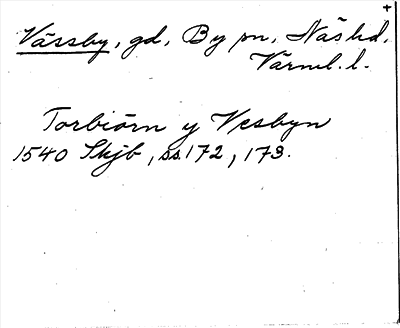 +
Vässby, gd, By sn, Näs hd.
Värml. l.
Torbiörn y Vesbyn
1540 Skjb, ss. 172, 173.